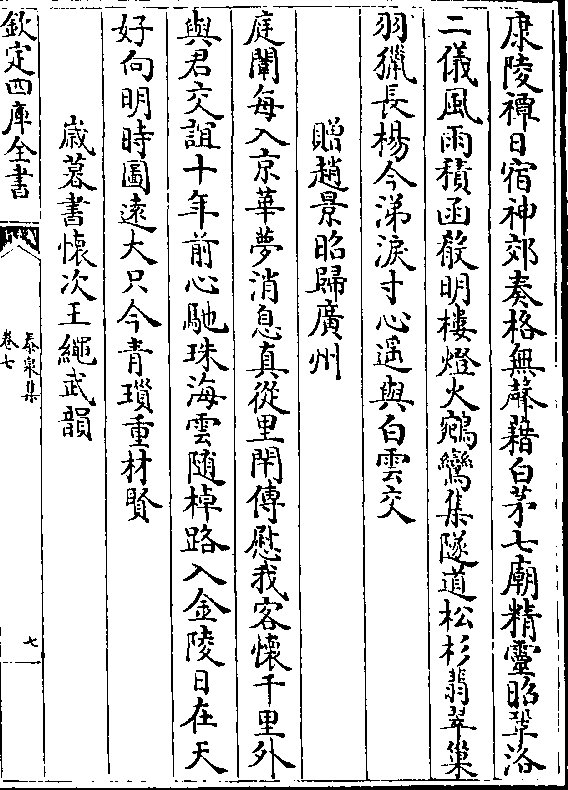 康陵禫日宿神郊奏格無聲藉白茅七廟精靈昭鞏洛
二儀風雨積函殽明樓燈火鵷鸞集隧道松杉翡翠巢
羽獵長楊今涕淚寸心遥與白雲交
贈趙景昭歸廣州
庭闈每入京華夢消息真從里閈傳慰我客懷千里外
與君交誼十年前心馳珠海雲随棹路入金陵日在天
好向明時圖遠大只今青瑣重材賢
歳暮書懷次王繩武韻
欽定四庫全書
泰泉集
卷七
七